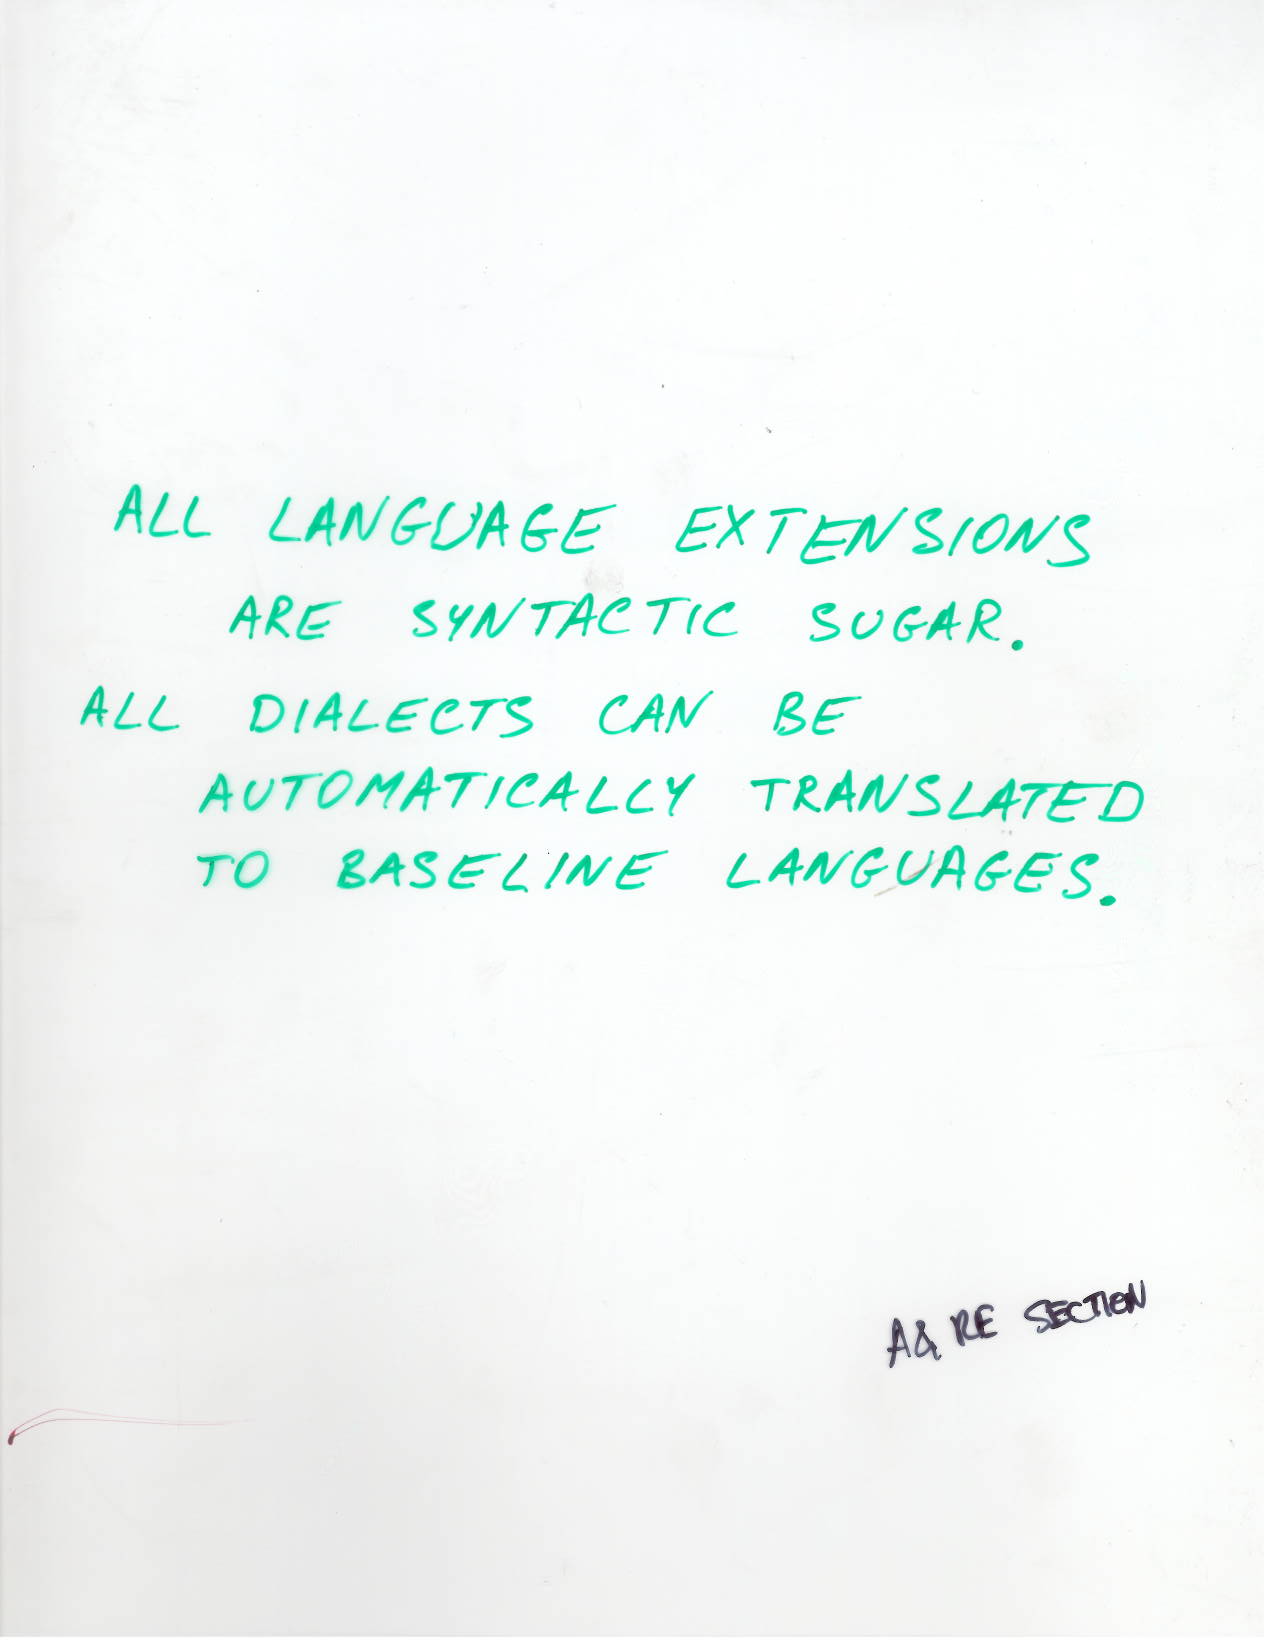 ALL LANGUAGE EXTENSIONS
ARE SYNTACTIC SUGAR.
ALL DIALECTS CAN BE
AUTOMATICALLY TRANSLATED
TO BASELINE LANGUAGES.
A& RE SECTION